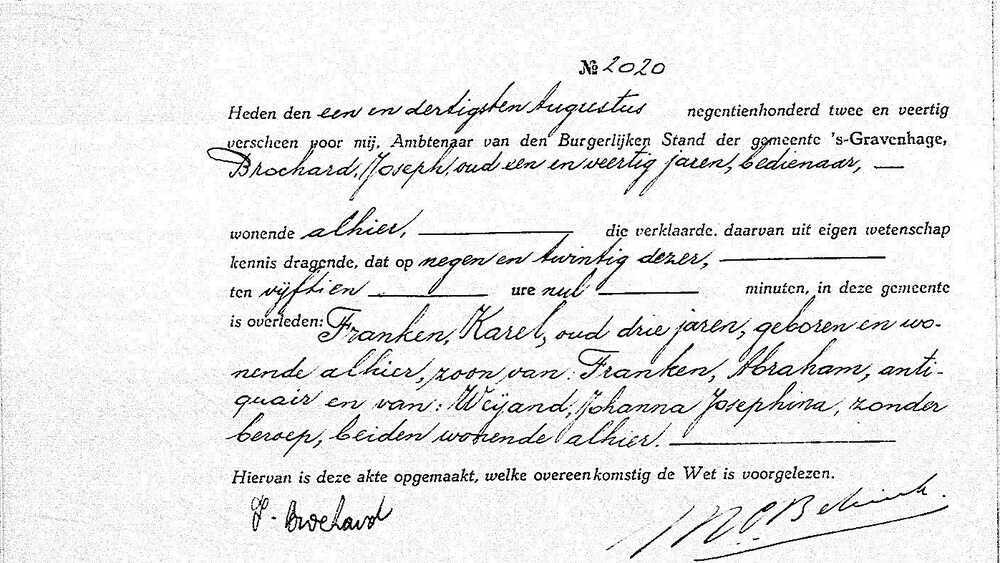 № 2020
Heden den een en dertigsten Augustus negentienhonderd twee en veertig
verscheen voor mij, Ambtenaar van den Burgerlijken Stand der gemeente 's-Gravenhage,
Brochard, Joseph, oud een en veertig jaren, bedienaar, —
wonende alhier, — die verklaarde, daarvan uit eigen wetenschap
kennis dragende, dat op negen en twintig dezer, —
ten vijftien — ure nul — minuten, in deze gemeente
is overleden: Franken, Karel, oud drie jaren, geboren en wo-
nende alhier, zoon van: Franken, Abraham, anti-
quair en van: Weijand, Johanna Josephina, zonder
beroep, beiden wonende alhier. —
Hiervan is deze akte opgemaakt, welke overeenkomstig de Wet is voorgelezen.
J. Brochard